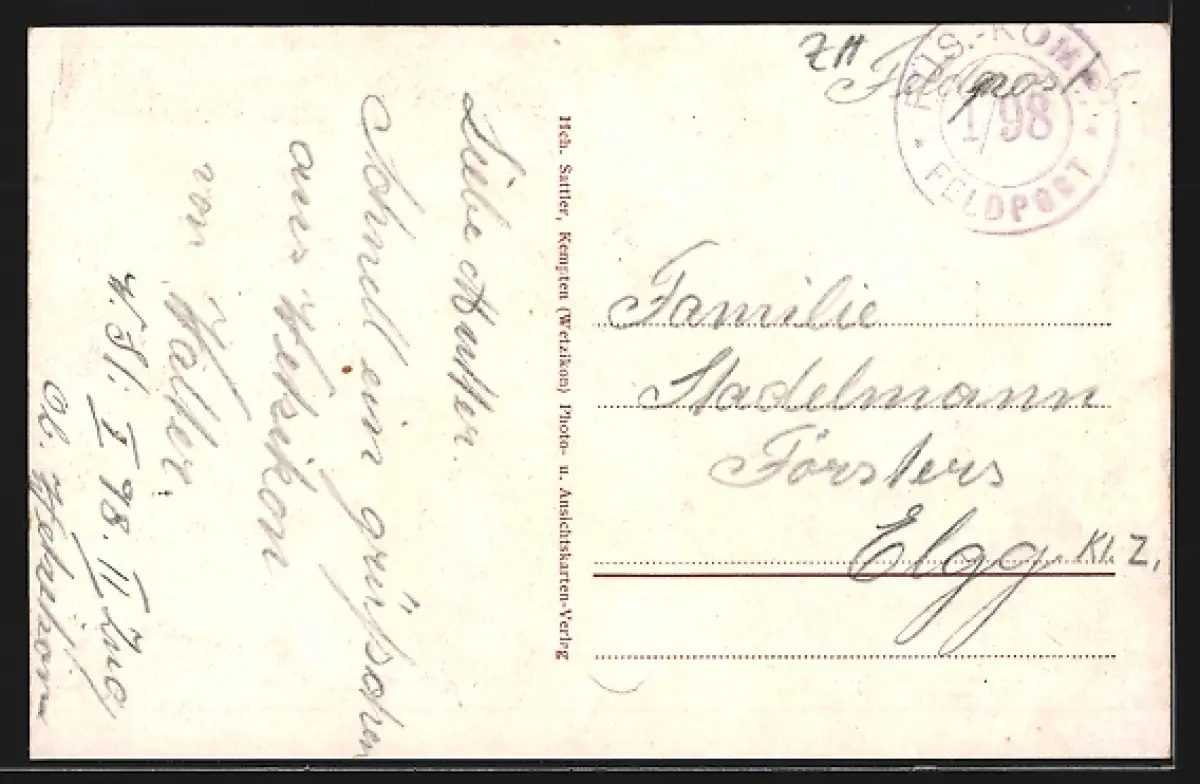 Liebe Mutter.
Schnell ein grüsschen
aus Wetzikon
von Walter.
I 98. II. Zug
Hch. Sattler, Kempten (Wetzikon) Photo- u. Ansichtskarten-Verlag
ZH
Feldpost
FÜS.-KOMP.
1/98
* FELDPOST *
Familie
Stadelmann
Försters
Elgg. Kt. Z.